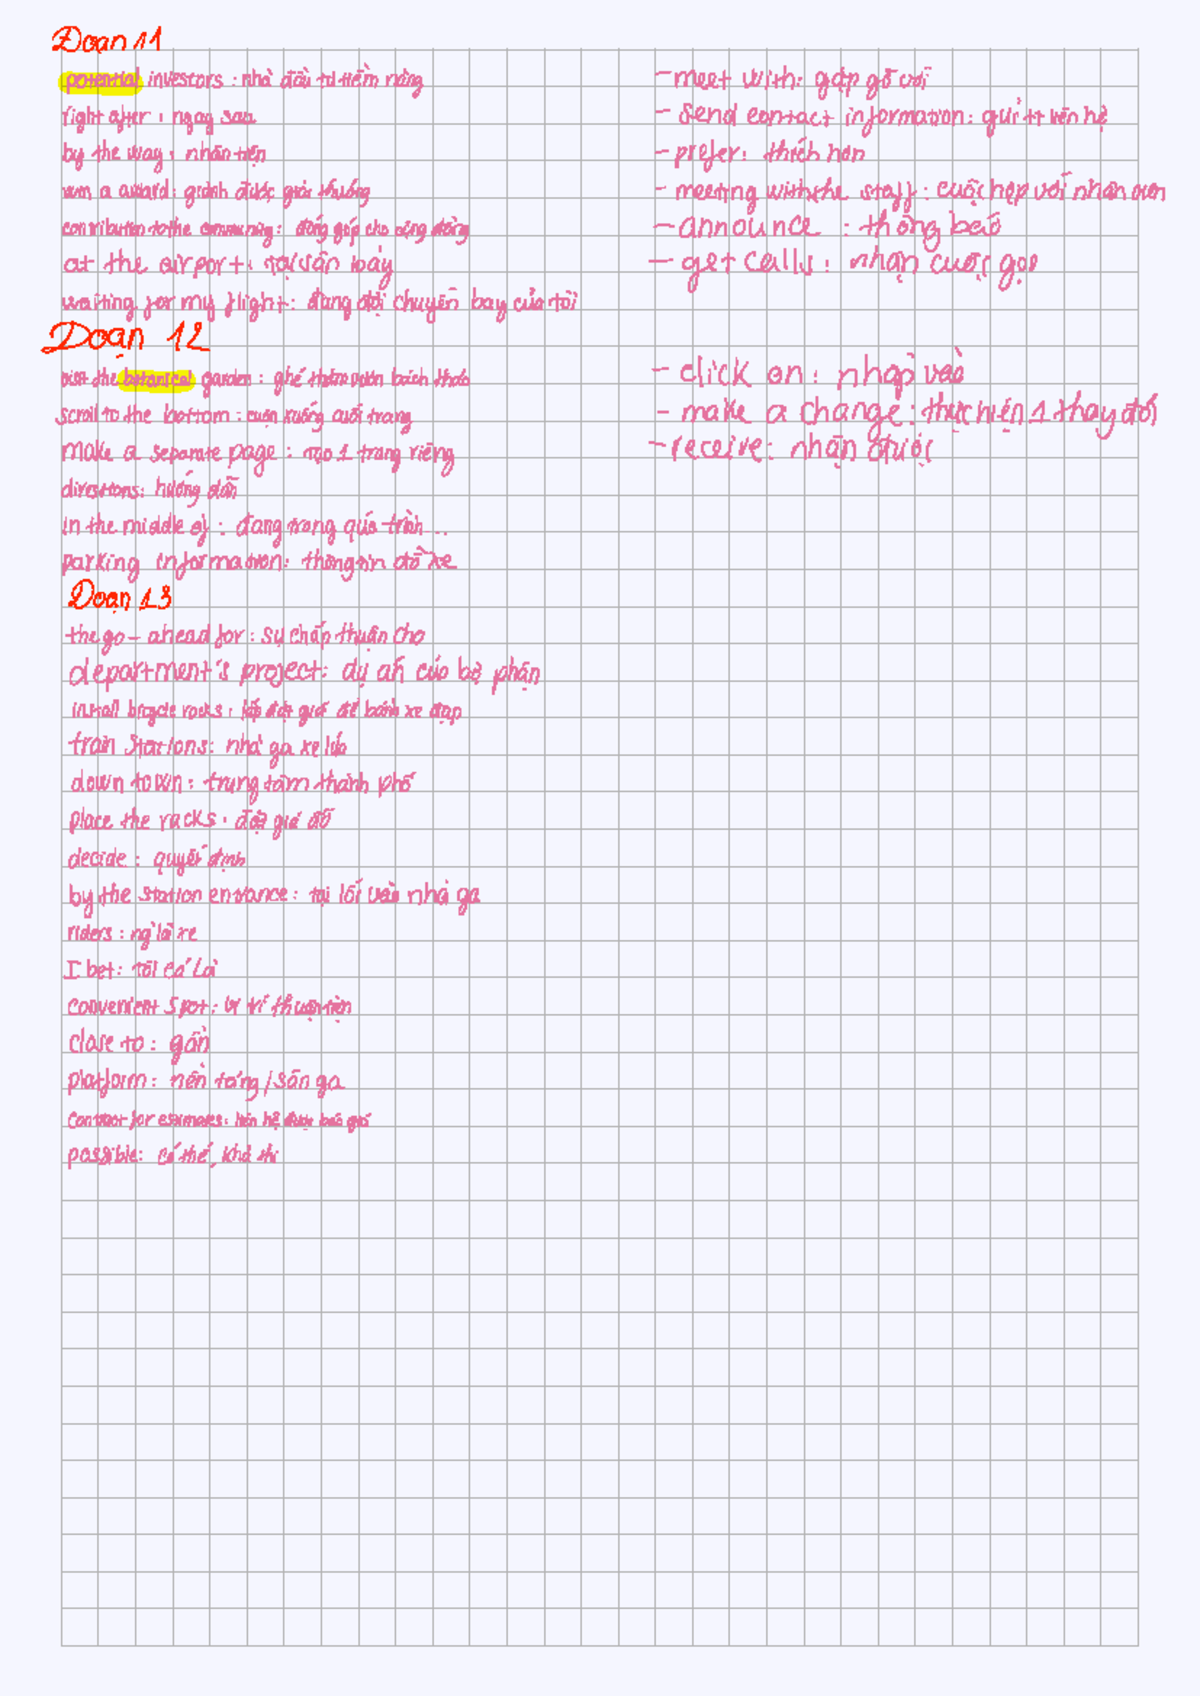 Đoạn 11
potential investors : nhà đầu tư tiềm năng
right after : ngay sau
by the way : nhân tiện
win a award : giành được giải thưởng
contribution to the community : đóng góp cho cộng đồng
at the airport : tại sân bay
waiting for my flight : đang đợi chuyến bay của tôi
- meet with : gặp gỡ với
- Send contact information : gửi tt liên hệ
- prefer : thích hơn
- meeting with the staff : cuộc họp với nhân viên
- announce : thông báo
- get calls : nhận cuộc gọi
Đoạn 12
visit the botanical garden : ghé thăm vườn bách thảo
scroll to the bottom : cuộn xuống cuối trang
make a separate page : tạo 1 trang riêng
directions : hướng dẫn
in the middle of : đang trong quá trình ...
parking information : thông tin đỗ xe
- click on : nhấp vào
- make a change : thực hiện 1 thay đổi
- receive : nhận được
Đoạn 13
the go - ahead for : sự chấp thuận cho
department's project : dự án của bộ phận
install bicycle racks : lắp đặt giá để bánh xe đạp
train Stations : nhà ga xe lửa
down town : trung tâm thành phố
place the racks : đặt giá đỡ
decide : quyết định
by the station entrance : tại lối vào nhà ga
riders : ng lái xe
I bet : tôi cá là
convenient Spot : vị trí thuận tiện
close to : gần
platform : nền tảng / sân ga
Contact for estimates : liên hệ được báo giá
possible : có thể, khả thi